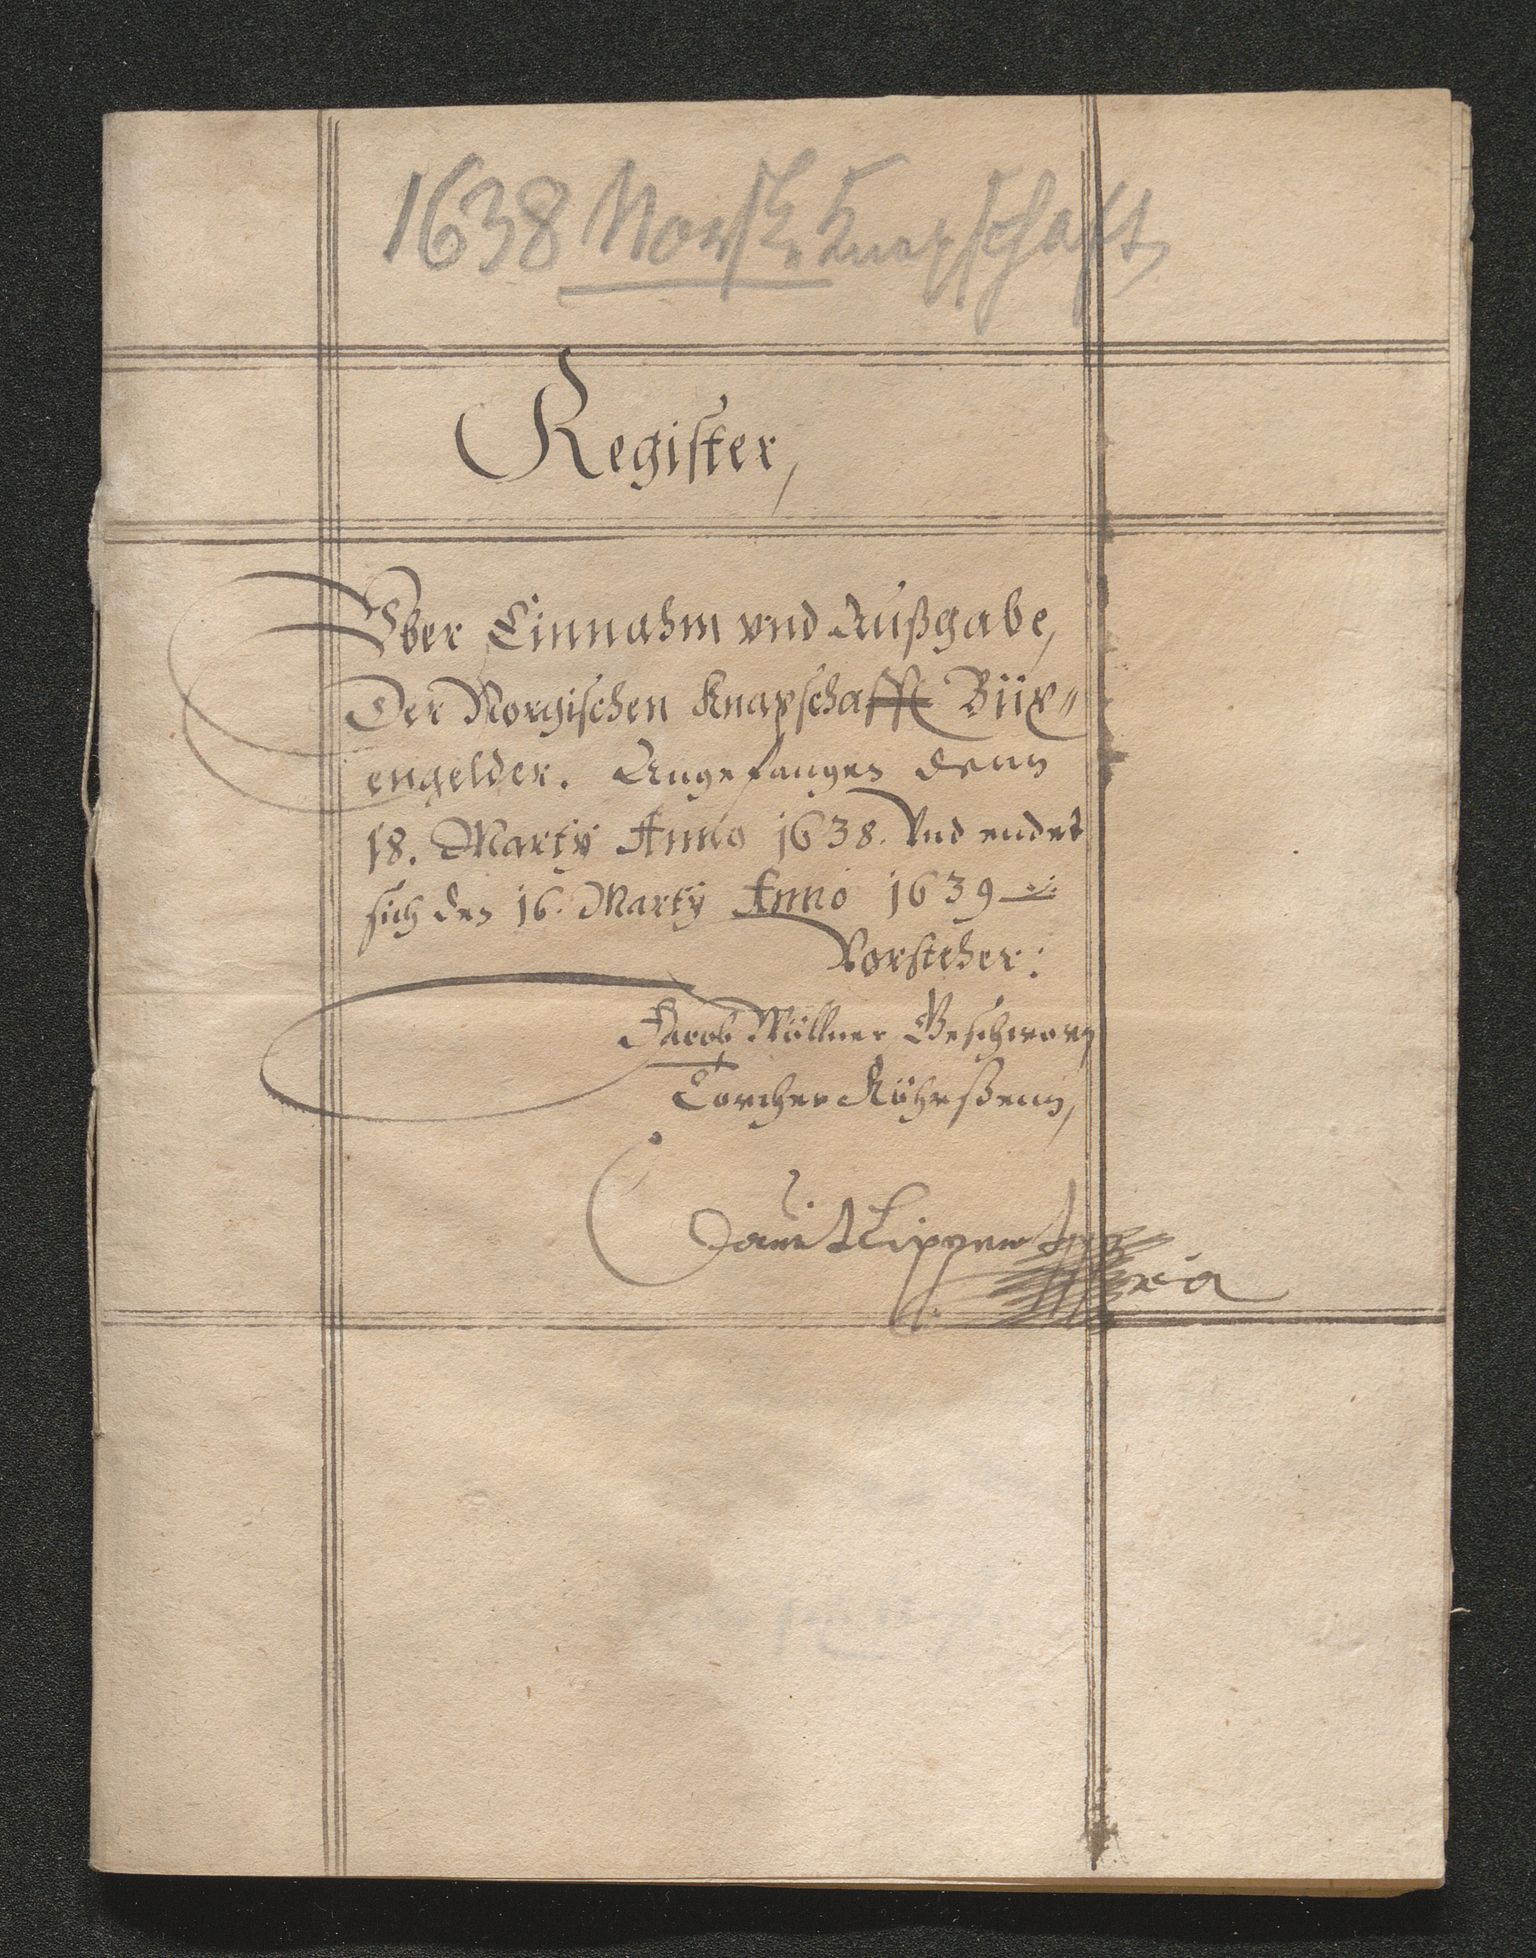 1638 Norsk. Knapschaft
Register,
Vber Einnahm vnd Außgabe,
Der Norgischen Knapschafft Büx〃
engelder. Angefangen denn
18. Marty Anno 1638. Vnd endet
sich den 16. Marty Anno 1639
Vorsteher:
Jacob Möllner Geschworn
Torcher Röhrßenn,
Dauit Lippert